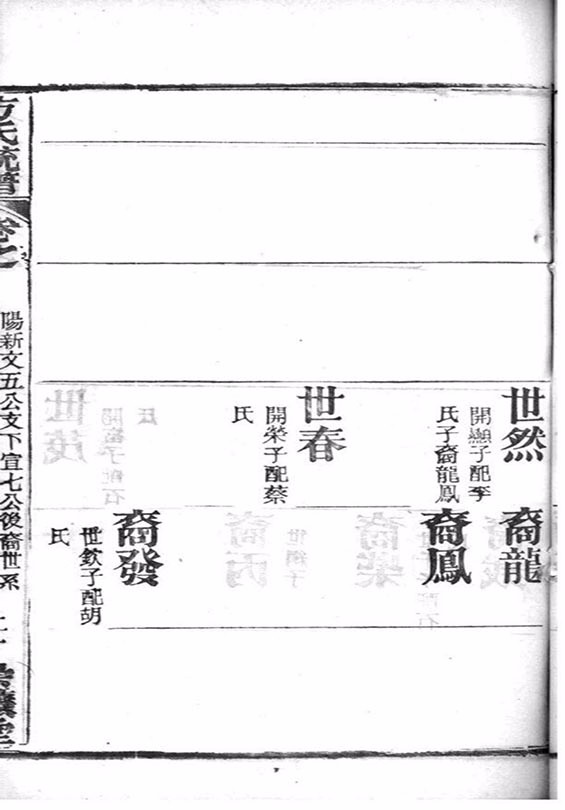 世然
開顯子配李
氏子裔龍鳳
裔龍
裔鳳
世春
開榮子配蔡
氏
裔發
世欽子配胡
氏
方氏統譜
卷之
陽新文五公支下宣七公後裔世系